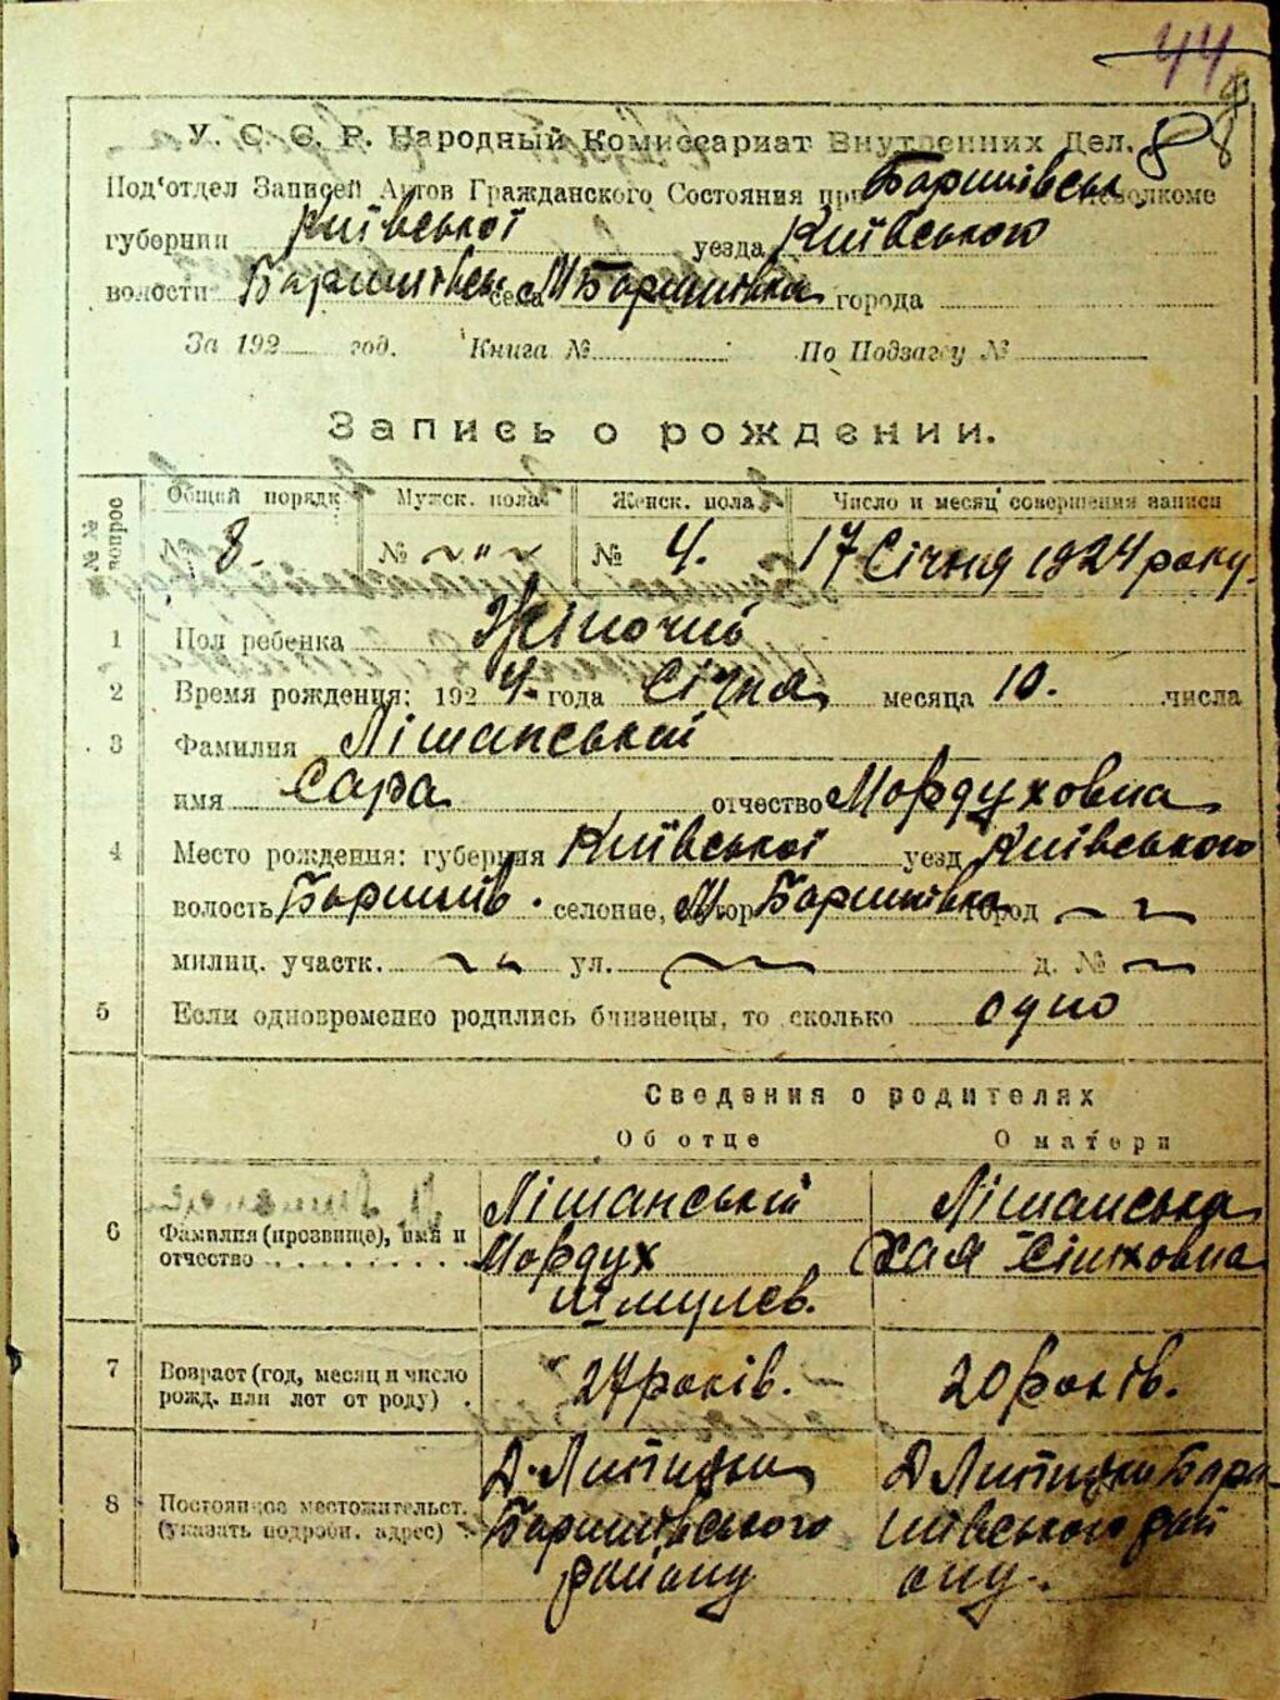 44
8
У. С. С. Р. Народный Комиссариат Внутренних Дел.
Под'отдел Записей Актов Гражданского Состояния при Баришівськ исполкоме
губернии Київської уезда Київського
волости Баришівськ села М Баришівка города
За 192 год. Книга № По Подзагсу №
Запись о рождении.
№№ вопрос Общий порядк. Мужск. пола Женск. пола Число и месяц совершения записи
№ 8. № ~"~ № 4. 17 Січня 1924 року.
1 Пол ребенка Жіночий
2 Время рождения: 1924. года Січня месяца 10. числа
3 Фамилия Лішанський
имя Сара отчество Мордуховна
4 Место рождения: губерния Київської уезд Київського
волость Баришів. селение, М. Баришівка город ~ ~
милиц. участк. ~ ~ ул. ~ д. № ~
5 Если одновременно родились близнецы, то сколько одно
Сведения о родителях
Об отце О матери
6 Фамилия (прозвище), имя и отчество Лішанський Лішанська
Мордух Хая
Шмулев.
7 Возраст (год, месяц и число рожд. или лет от роду) 27 років. 20 років.
8 Постоянное местожительст. (указать подробн. адрес) Д. Д
Баришівського Бари-
району шівського рай
ону.